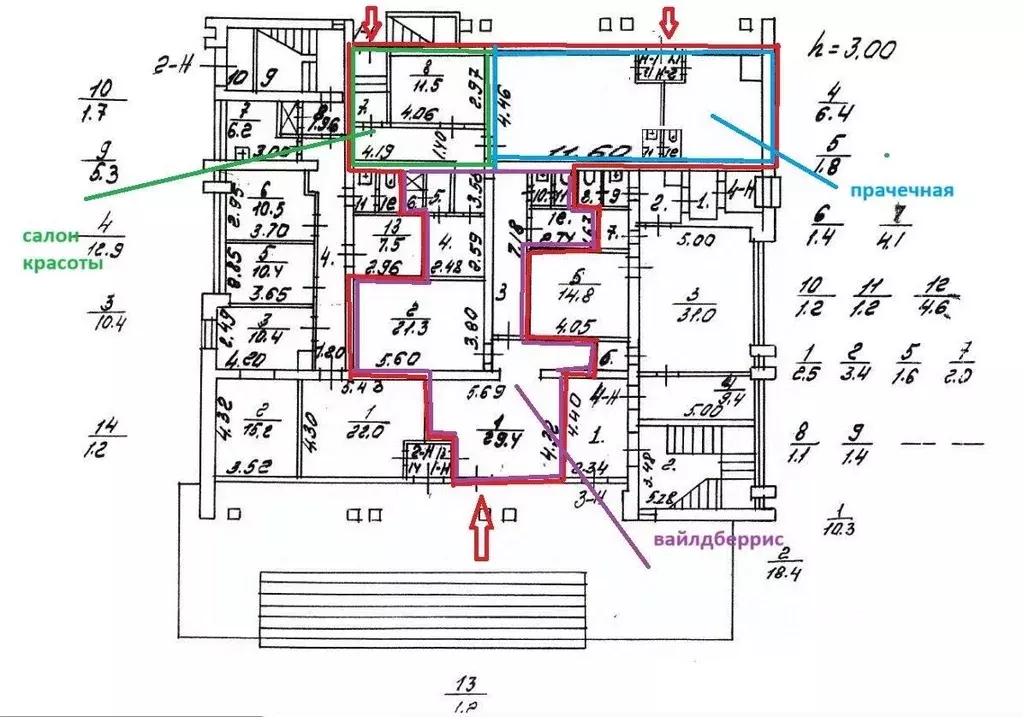 h = 3,00
2-Н
10
9
10
1.7
8
11.5
4.06
2.97
4.46
4
6.4
7
6.2
3.00
8
1.96
7.
4.19
1.40
11.60
5
1.8
9
5.3
прачечная
6
10.5
2.95
3.70
11
12
6.
5.
3.56
10.
11
8.
9
2.
1.
4-Н
6
1.4
7
4.1
салон
красоты
4
12.9
13
7.5
2.96
4.
2.48
2.59
7.18
12.
2.74
1.67
7.
5.00
5
10.4
3.85
3.65
4.
3
5
14.8
4.05
3
31.0
10
1.2
11
1.2
12
4.6
3
10.4
3
10.4
2.49
4.20
1.20
2
21.3
5.60
3.80
6.
1
2.5
2
3.4
5
1.6
7
2.0
5.43
5.69
4
9.4
5.00
4-Н
14
1.2
2
15.2
4.32
3.52
4.30
1
22.0
1
29.4
4.32
4.40
1.
2.34
2.
3.48
5.28
8
1.1
9
1.4
2-Н
14
13
1-Н
3-Н
1
10.3
вайлдберрис
2
18.4
13
1.2